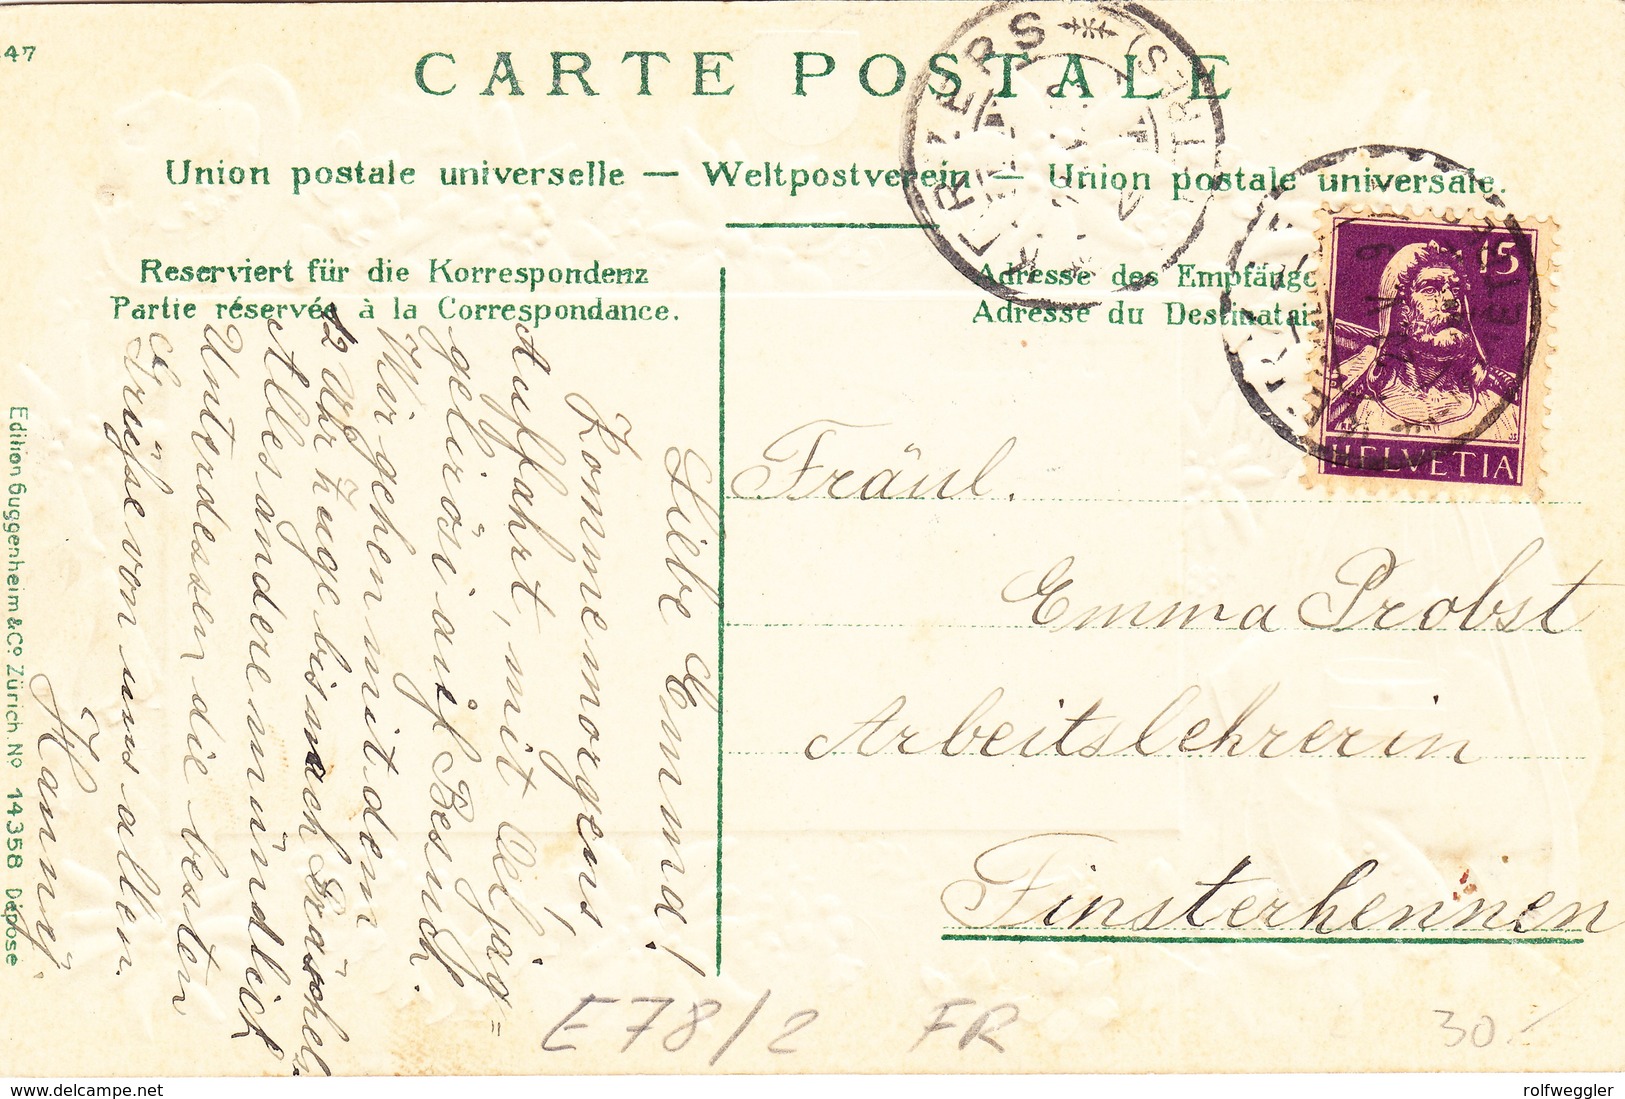 47
CARTE POSTALE
Union postale universelle — Weltpostverein — Union postale universale.
Reserviert für die Korrespondenz
Partie réservée à la Correspondance.
Adresse des Empfänge
Adresse du Destinatai
KERZERS
15
HELVETIA
Liebe Emma!
Komme morgens,
Auffahrt, mit
gelirösi auf Besuch.
Wir gehen mit dem
12 Uhr Zuge bis nach
Alles andere mündlich
Unterdessen die besten
Grüsse von uns allen.
Hanny.
Fräul.
Emma Probst
Arbeitslehrerin
Finsterhennen
Edition Guggenheim & Co. Zürich No 14358 Déposé
E78/2 FR 30.-
www.delcampe.net
rolfweggler